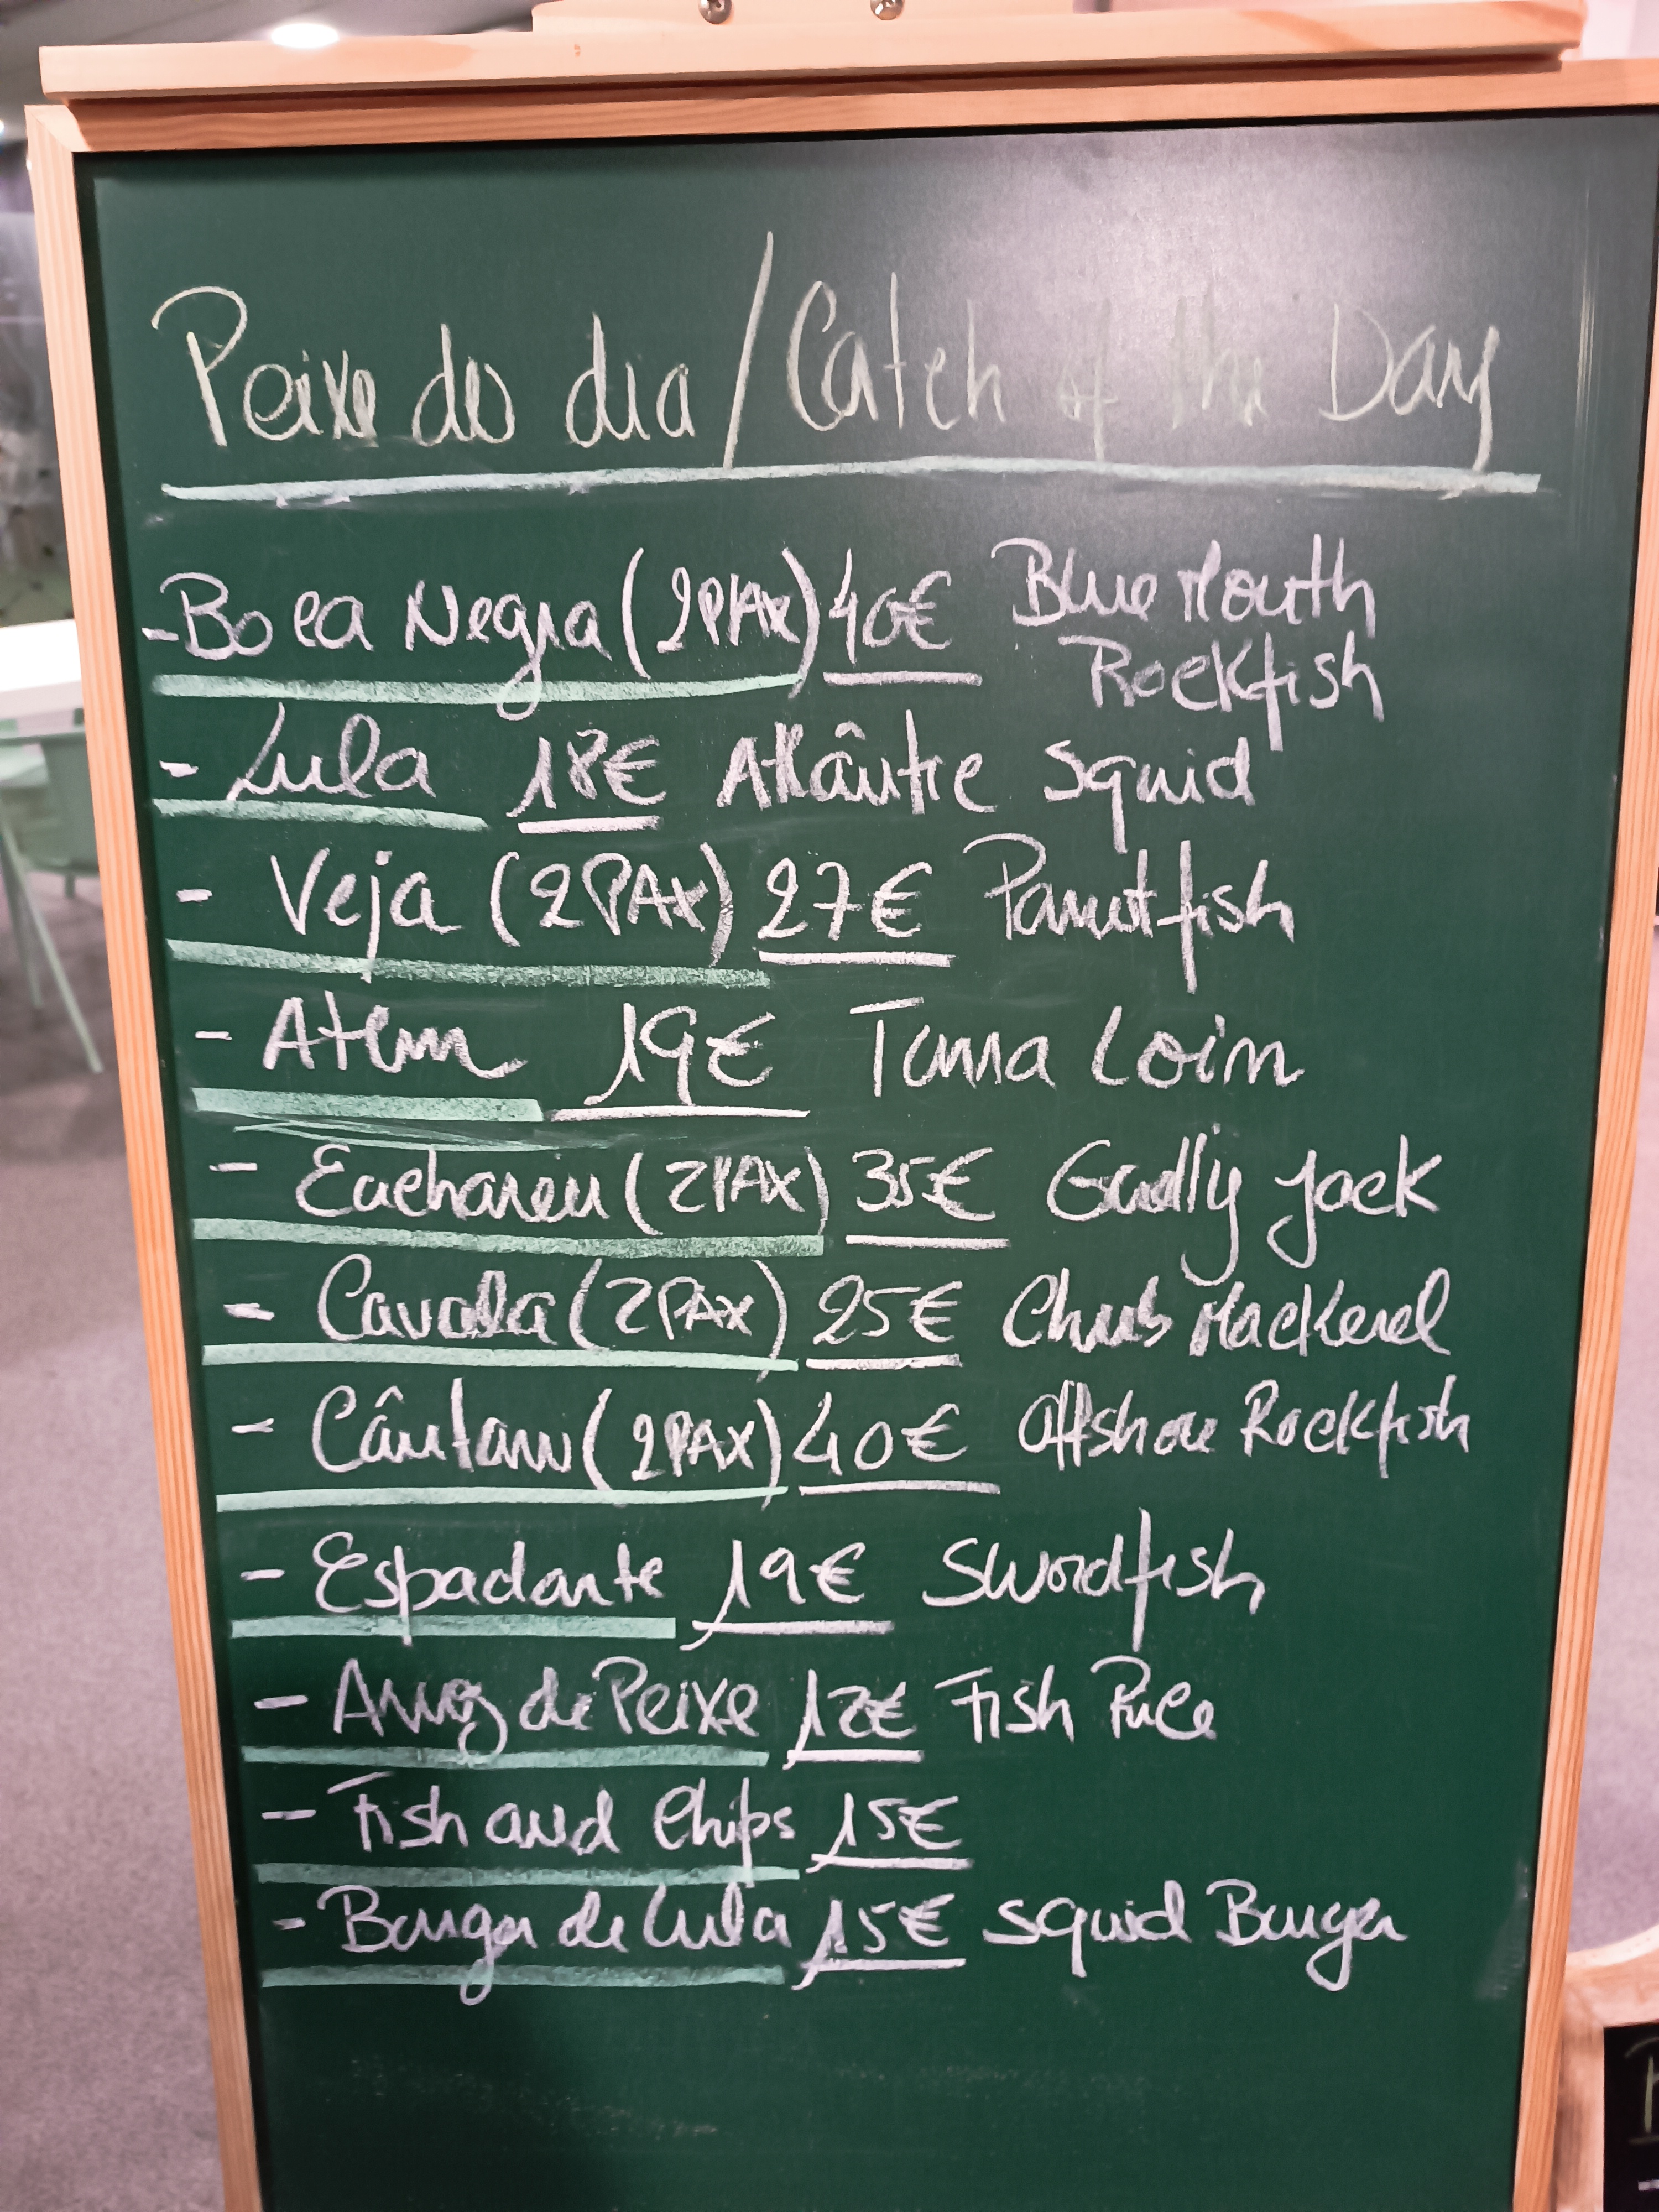 Peixe do dia / Catch of the Day
- Boca Negra (2PAX) 40€ Blue Mouth
Rockfish
- Lula 18€ Atlântic Squid
- Veja (2PAX) 27€ Parrotfish
- Atum 19€ Tuna Loin
- Encharéu (2PAX) 35€ Guelly Jack
- Cavala (2PAX) 25€ Chub Mackerel
- Cântaro (2PAX) 40€ Offshore Rockfish
- Espadarte 19€ Swordfish
- Arroz de Peixe 12€ Fish Rice
- Fish and Chips 15€
- Burger de Lula 15€ Squid Burger